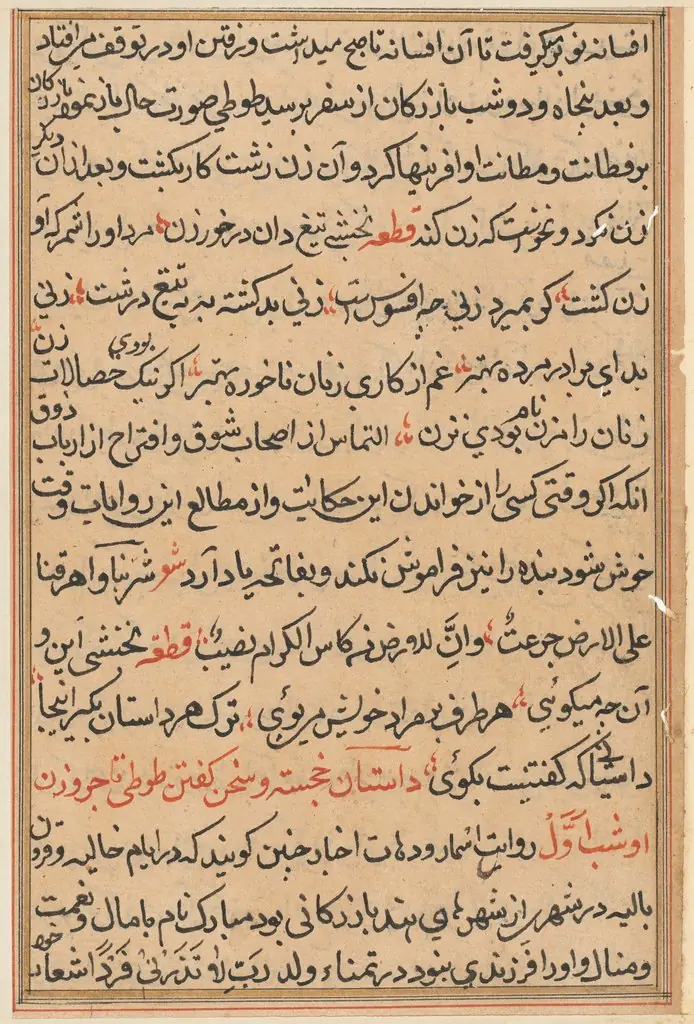 افسانه نو برمیگرفت تا آن افسانه تا صبح میداشت و رفتن او در توقف می افتاد
و بعد پنجاه و دو شب بازرکان از سفر برسید طوطی صورت حال باز نمود بازرکان
بر فطانت و مطانت او آفرینها کرد و آن زن زشت کار بکشت و بعد از ان دیکر
زن نکرد و نخواست که زن کند قطعه نخشبی تیغ دان در خور زن مرد او را شمر که او
زن کشت کر بمیرد زنی چه افسوس است زنی بد کشته به به تیغ درشت زنی
بد ای برادر مرده بهتر غم از کار بی زنان ناخورده بهتر اکر نیک بودی خصالات زن
زنان را مزن نام بودی نزن التماس از اصحاب شوق و اقتراح از ارباب ذوق
انکه اکر وقتی کسی را از خواندن این حکایت و از مطالع این روایات وقت
خوش شود بنده را نیز فراموش نکند و بفاتحه یاد آرد شعر شربنا و اهرقنا
علی الارض جرعت وان للارض من کاس الکرام نصیب قطعه نخشبی این و
آن چه میکوئی هر طرف بر مراد خویش مپوئی ترک هر داستان بکیر اینجا
داستانی که کفتنیست بکوی داستان خجسته و سخن کفتن طوطی تاجر و زن
او شب اوّل روایت اسمار و دهات اخبار چنین کویند که در ایام خالیه و قرون
بالیه در شهری از شهرهای هند بازرکانی بود مبارک نام با مال و نعمت
و منال و او را فرزندی نبود در تمناء ولد رَبِّ لا تَذَرْنی فَرْدًا شعار خود